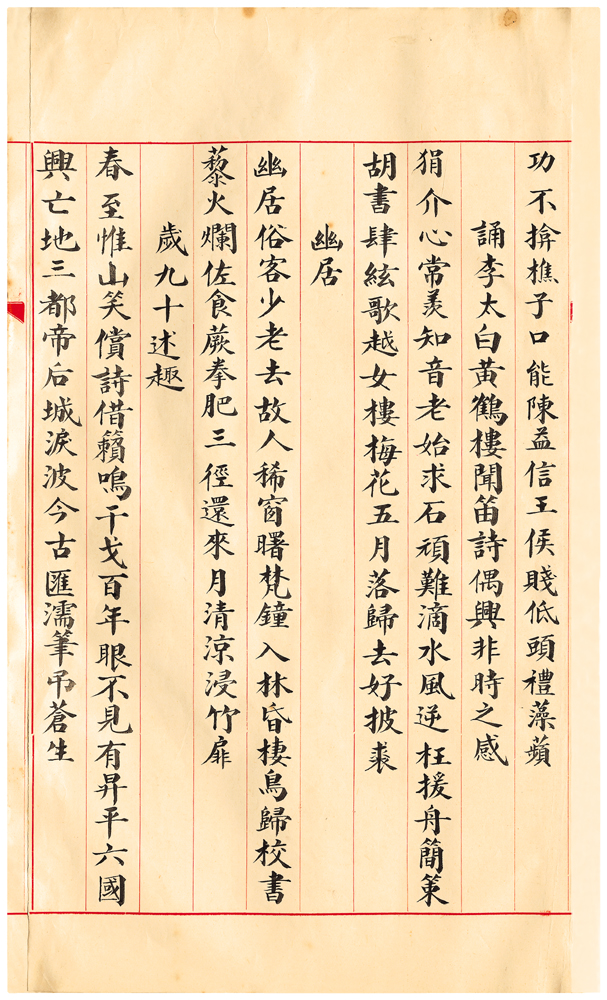 功不揜樵子口能陳益信王侯賤低頭禮藻蘋
誦李太白黃鶴樓聞笛詩偶興非時之感
狷介心常羨知音老始求石頑難滴水風逆枉援舟簡策
胡書肆絃歌越女樓梅花五月落歸去好披裘
幽居
幽居俗客少老去故人稀窗曙梵鐘入林昏棲鳥歸校書
藜火爛佐食蕨拳肥三徑還來月清涼浸竹扉
歲九十述趣
春至惟山笑償詩借籟鳴干戈百年眼不見有昇平六國
興亡地三都帝后城淚波今古匯濡筆吊蒼生